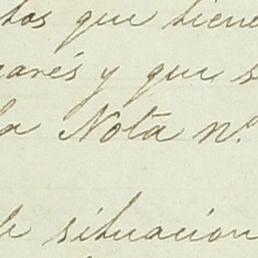 tos que tiene
arés y que s
la Nota nº
de situacion